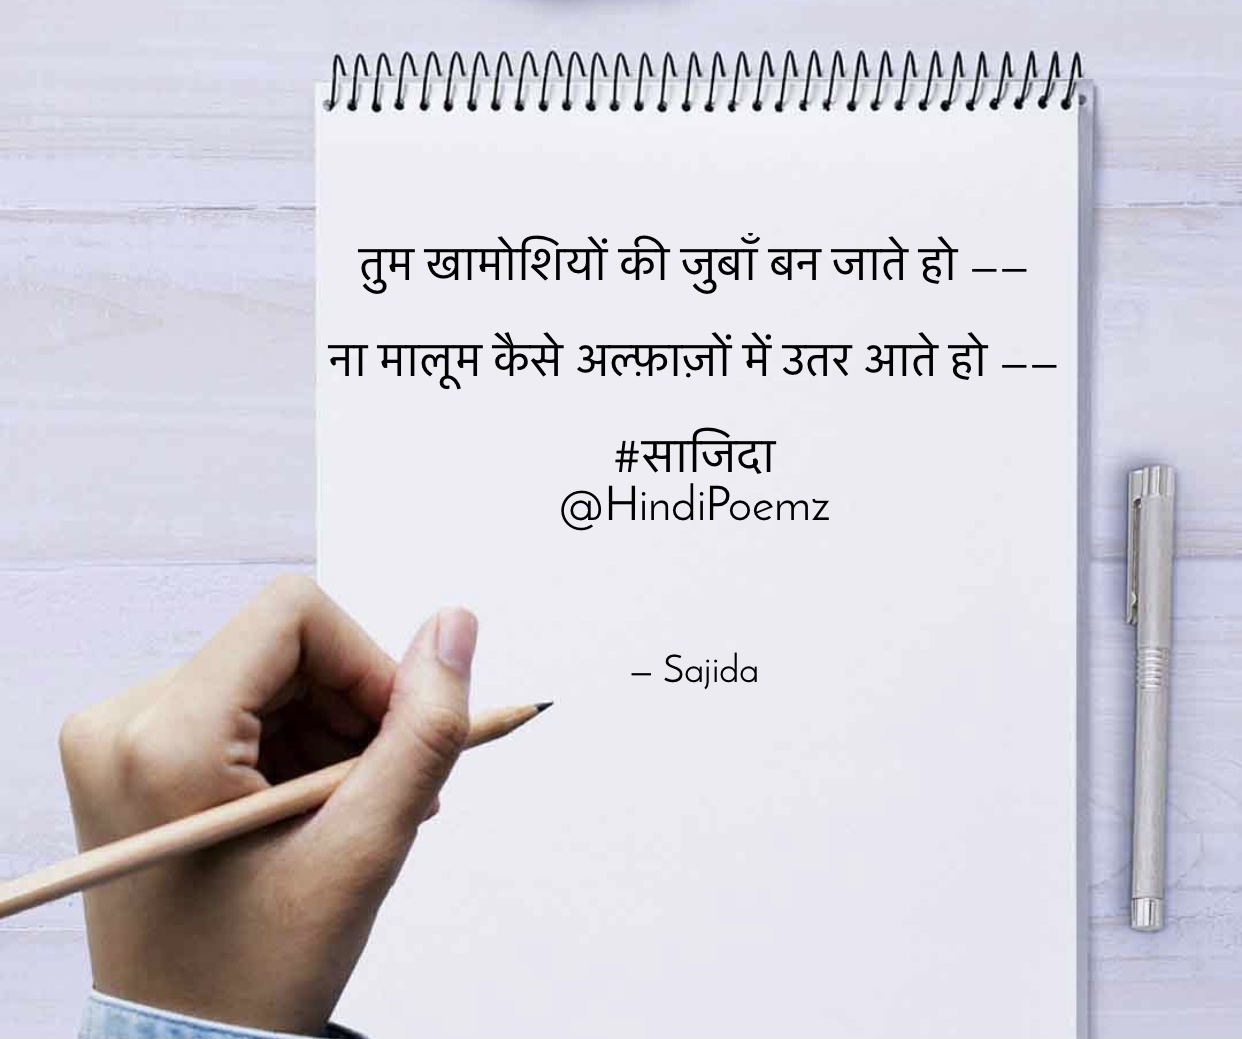 तुम खामोशियों की जुबाँ बन जाते हो --
ना मालूम कैसे अल्फ़ाज़ों में उतर आते हो --
#साजिदा
@HindiPoemz
– Sajida